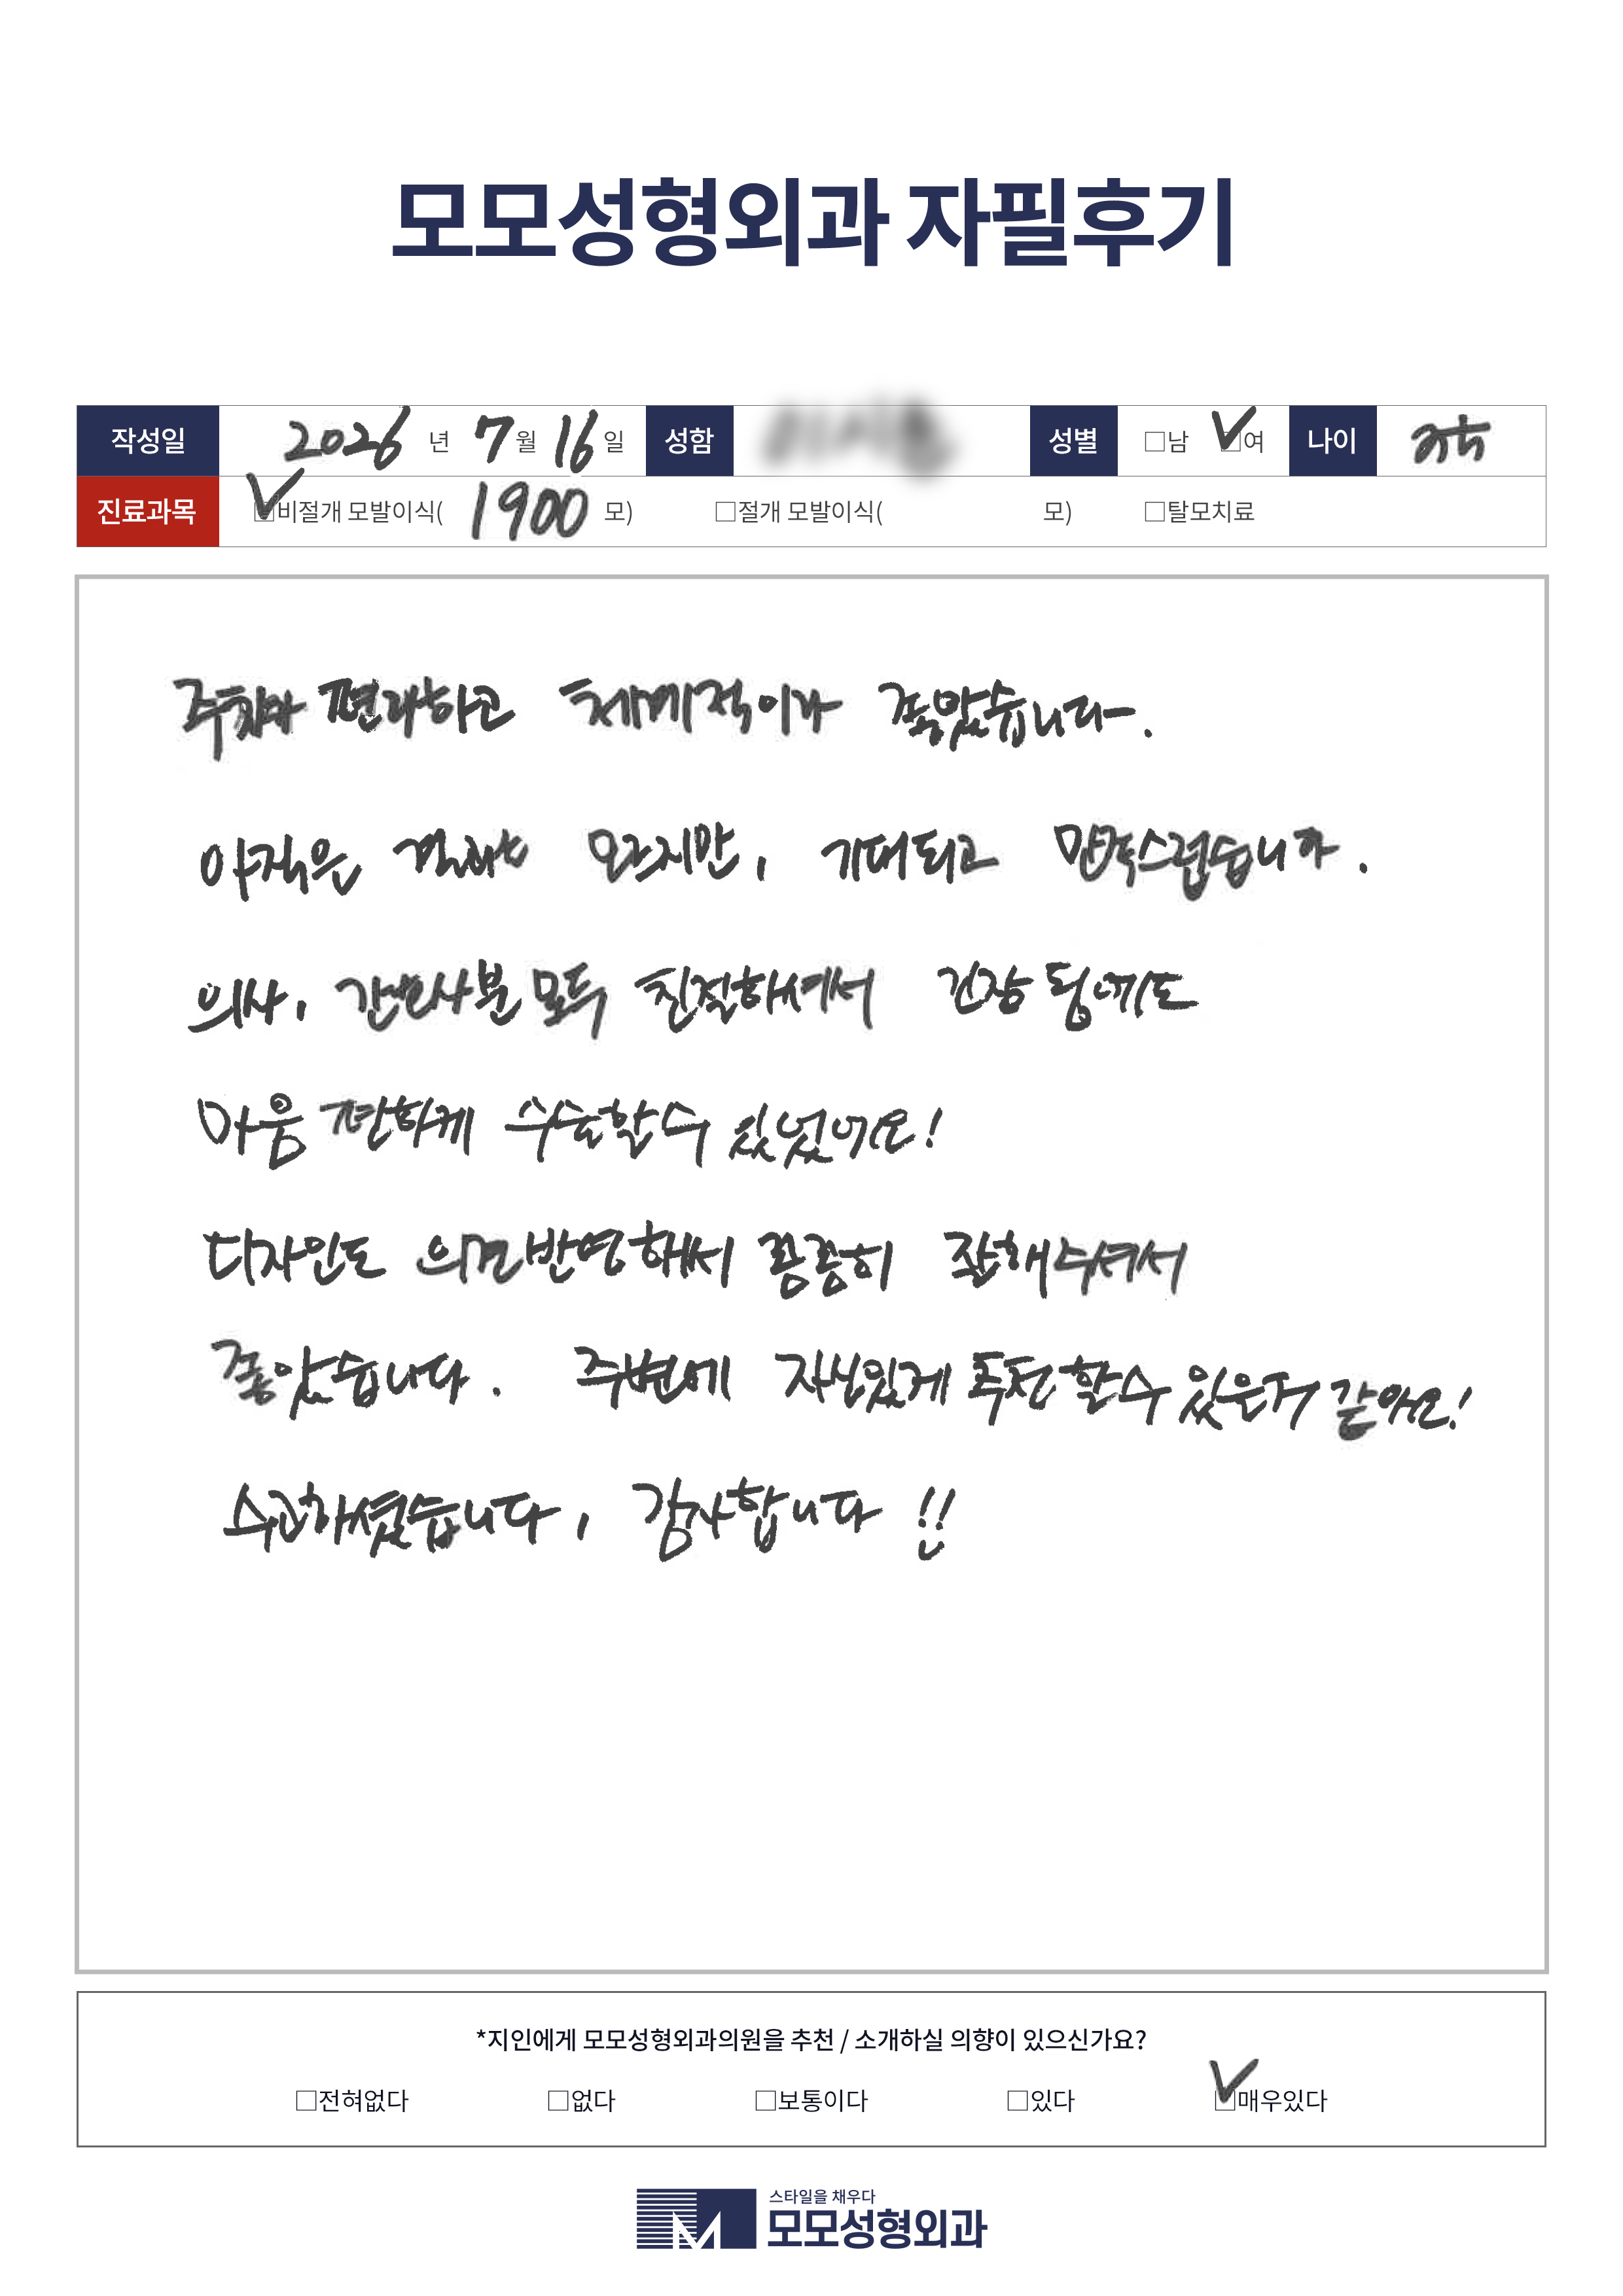 모모성형외과 자필후기
작성일 2026 년 7 월 16 일 성함 성별 □남 ☑여 나이
진료과목 ☑비절개 모발이식( 1900 모) □절개 모발이식( 모) □탈모치료
편하고 체계적이라 좋았습니다.
아직은 결과는 모르지만, 기대되고 만족스럽습니다.
의사, 간호사분 모두 친절하셔서 긴장 됨에도
마음 편하게 수술할수 있었어요!
디자인도 의견반영해서 꼼꼼히 잘해주셔서
좋았습니다. 주변에 자신있게 추천할수 있을거 같아요!
수고하셨습니다, 감사합니다 !!
*지인에게 모모성형외과의원을 추천 / 소개하실 의향이 있으신가요?
□전혀없다 □없다 □보통이다 □있다 ☑매우있다
스타일을 채우다
모모성형외과